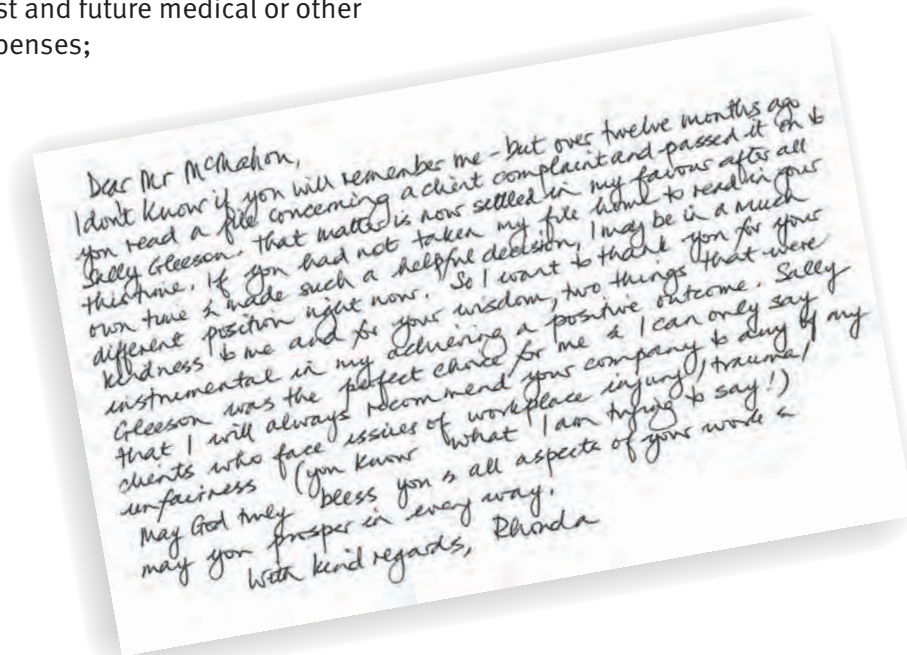 st and future medical or other
penses;
Dear Mr McMahon,
I don't know if you will remember me - but over twelve months ago
you read a file concerning a client complaint and passed it on to
Sally Gleeson. That matter is now settled in my favour after all
this time. If you had not taken my file home to read in your
own time & made such a helpful decision, I may be in a much
different position right now. So I want to thank you for your
kindness to me and for your wisdom, two things that were
instrumental in my achieving a positive outcome. Sally
Gleeson was the perfect choice for me & I can only say
that I will always recommend your company to any of my
clients who face issues of workplace injury/trauma/
unfairness (you know what I am trying to say!)
May God truly bless you & all aspects of your work &
may you prosper in every way.
With kind regards, Rhonda